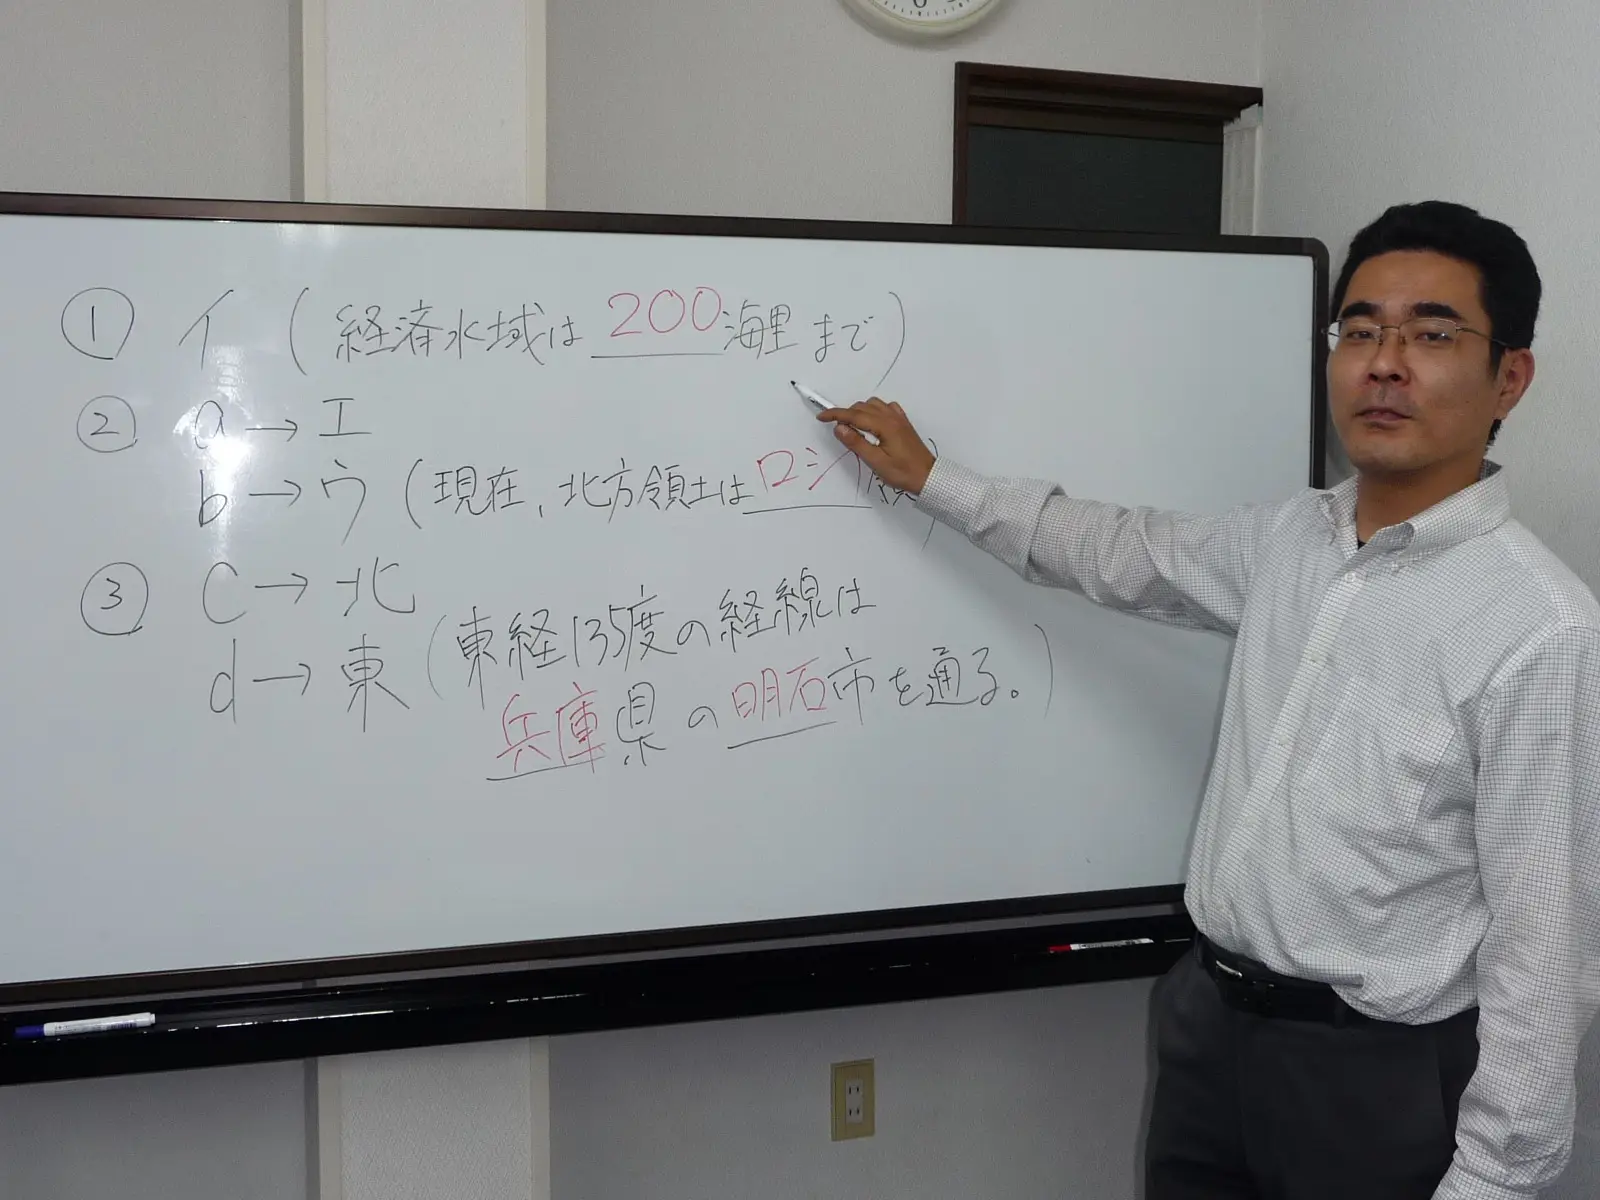 ① イ (経済水域は 200海里まで)
② a→エ
b→ウ (現在、北方領土は
③ c→北
d→東 (東経135度の経線は
兵庫県の明石市を通る。)